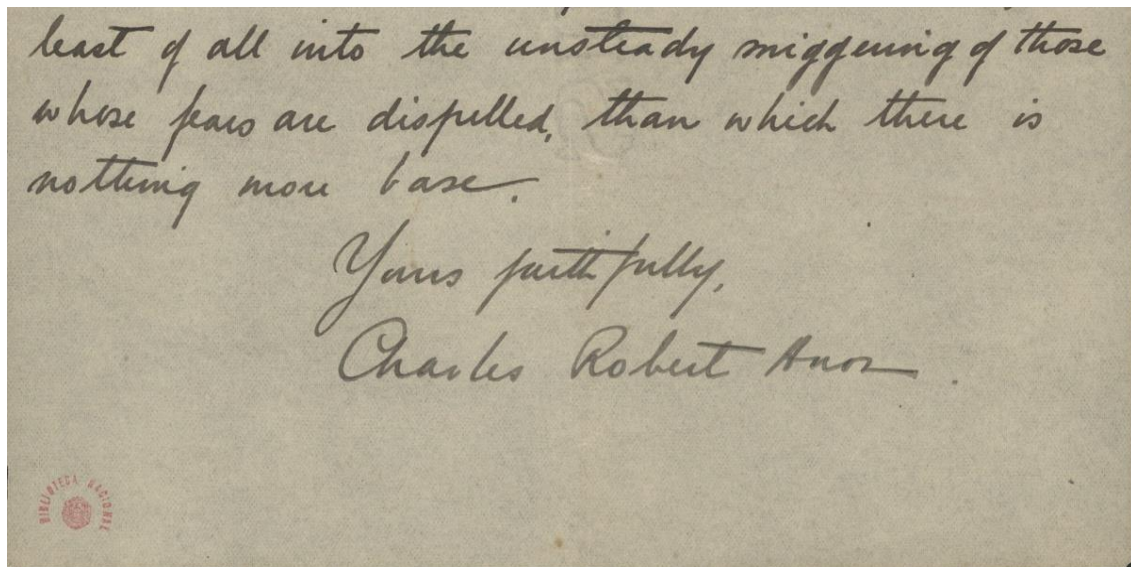 least of all into the unsteady sniggering of those
whose fears are dispelled, than which there is
nothing more base.
Yours faithfully,
Charles Robert Anon.
BIBLIOTECA NACIONAL